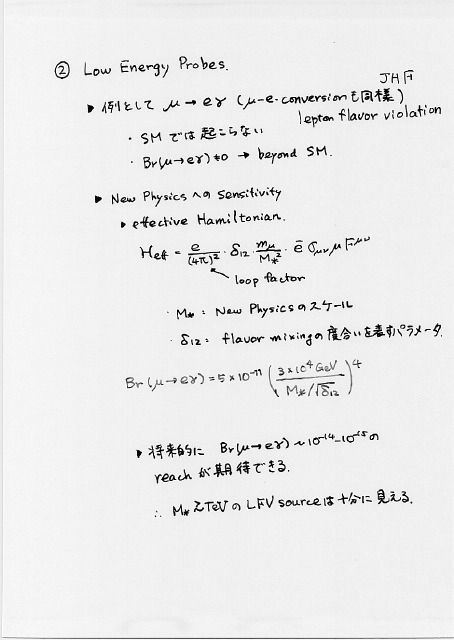 ② Low Energy Probes.
JHF
▶ 例として μ→eγ (μ-e-conversionも同様)
lepton flavor violation
・SMでは起こらない
・Br(μ→eγ)≠0 → beyond SM.
▶ New Physicsへのsensitivity
▶ effective Hamiltonian.
Heff = e/(4π)² · δ12 · mμ/M*² · ē σμν μ F^μν
loop factor
・M* : New Physicsのスケール
・δ12 : flavor mixingの度合いを表すパラメータ.
Br(μ→eγ) = 5×10⁻¹¹ (3×10⁴GeV / M*/√δ12)⁴
▶ 将来的に Br(μ→eγ) ~ 10⁻¹⁴-10⁻¹⁵の
reach が期待できる.
∴ M* ≳ TeVのLFV sourceは十分に見える.